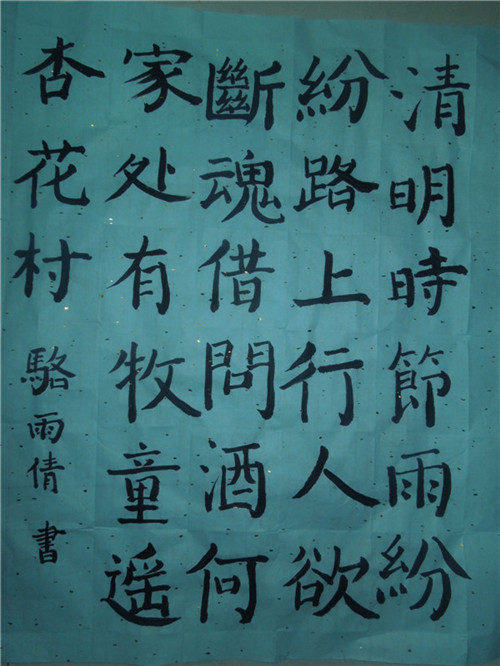 清明時節雨紛
紛路上行人欲
斷魂借問酒何
家处有牧童遥
杏花村
駱雨倩書